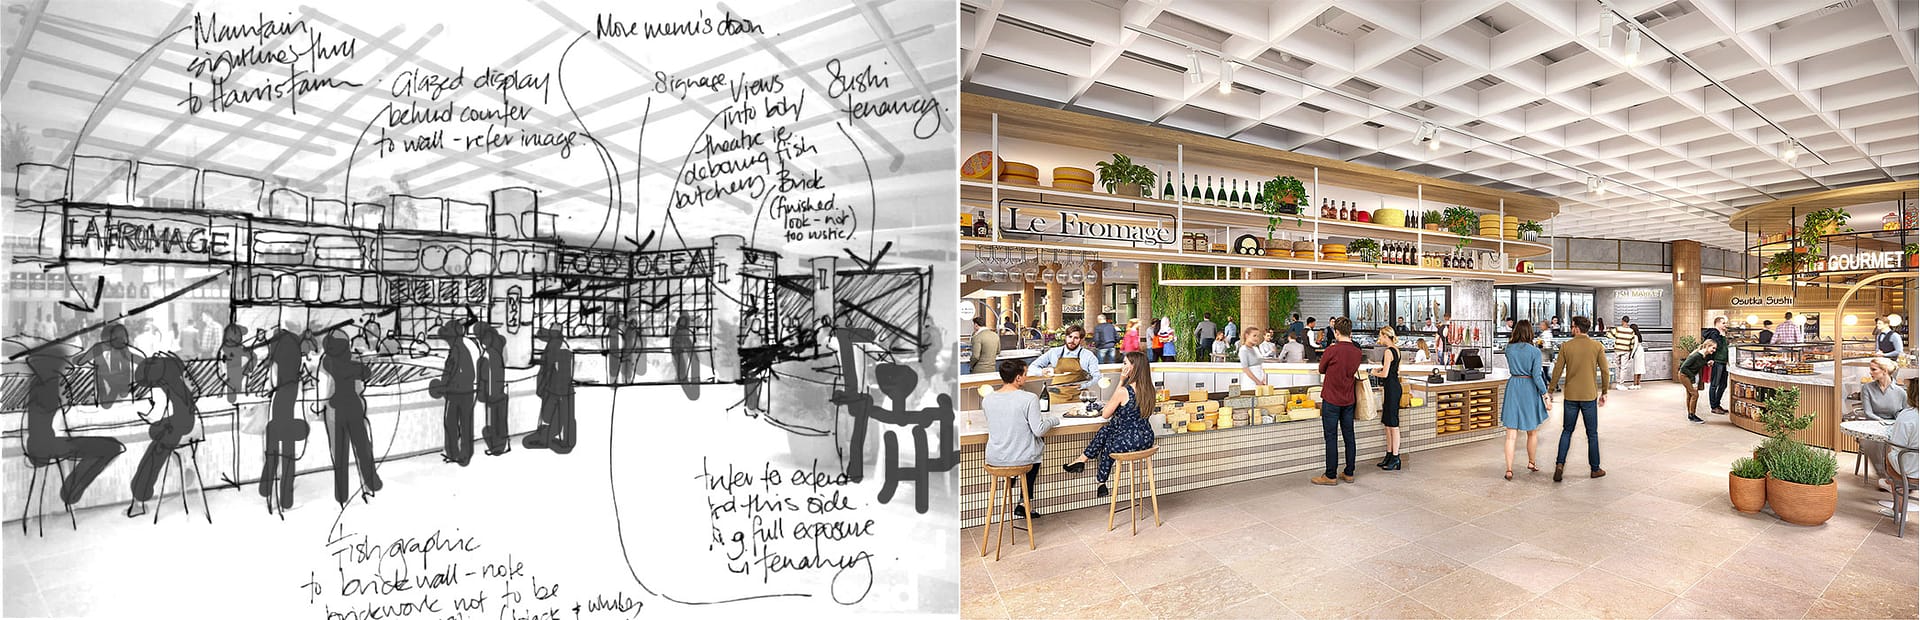 Maintain
sightlines thru
to Harris Farm
Glazed display
behind counter
to wall - refer image
Move menu's down.
Signage
Views
into both
theatre ie.
deboning fish
butchery
Brick
(finished
look - not
too rustic).
Sushi
tenancy.
LA FROMAGE
FOOD OCEA
to extend
this side.
full exposure
tenancy.
Fish graphic
to brick wall - note
brickwork not to be
Le Fromage
GOURMET
Osutka Sushi